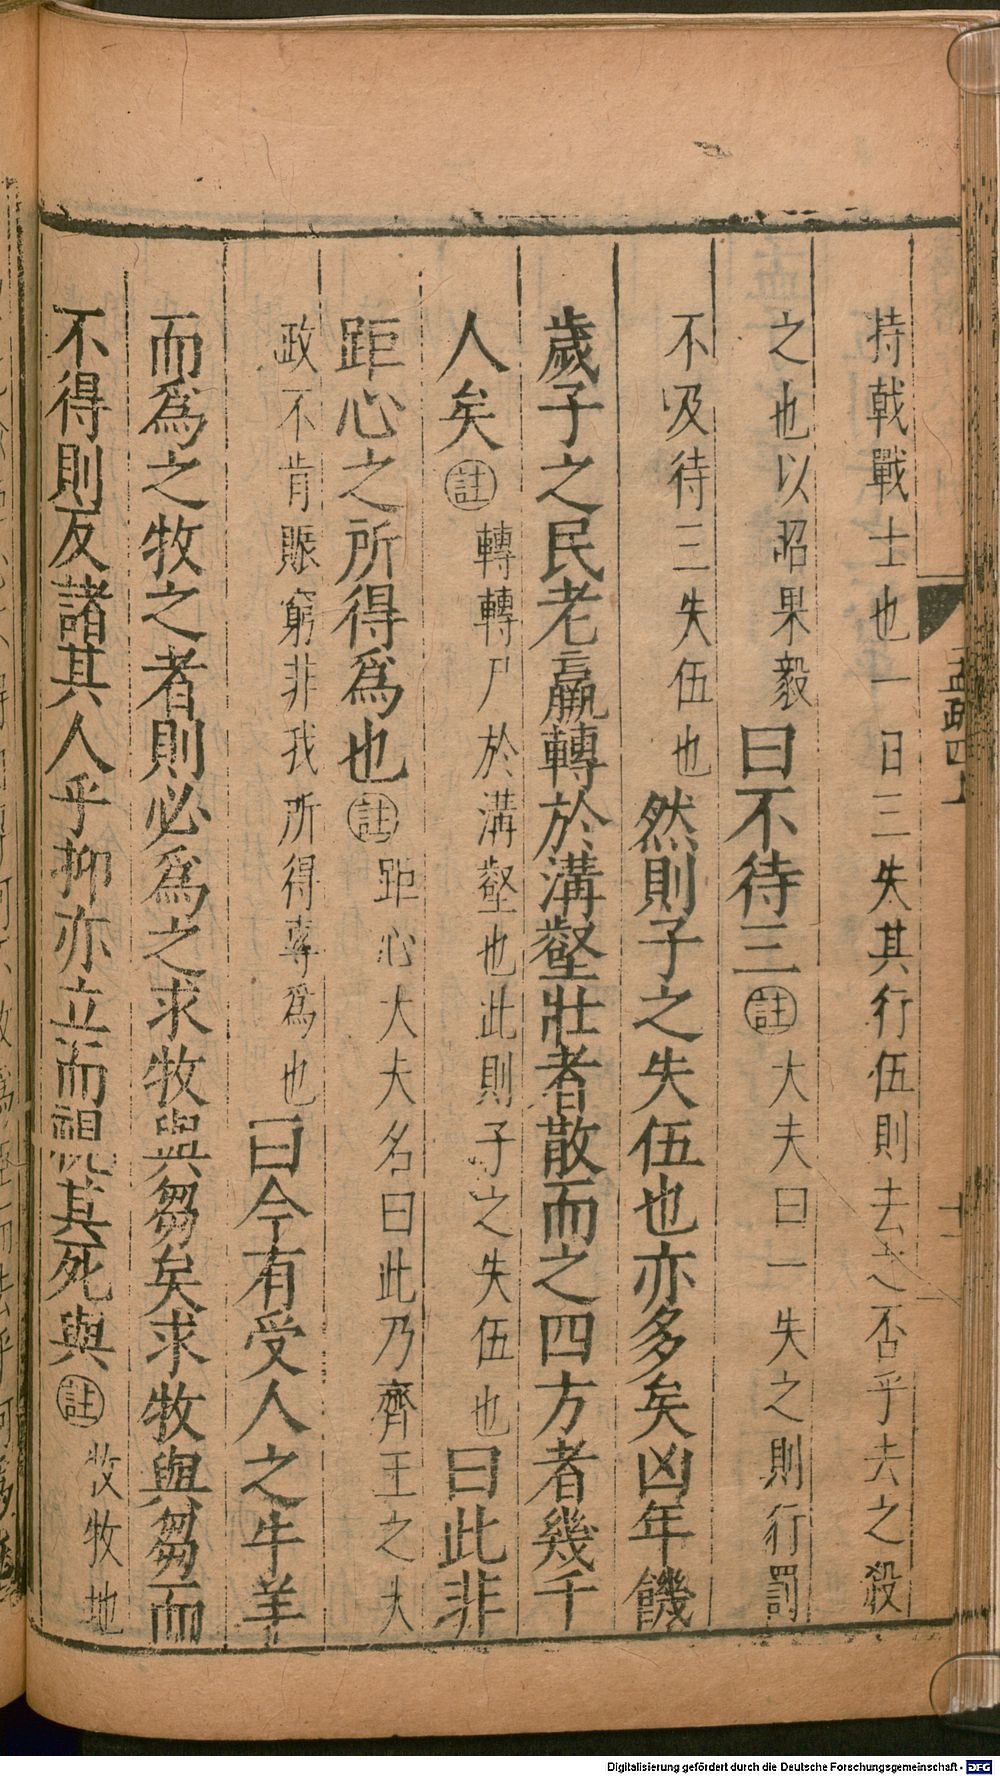 持戟戰士也一日三失其行伍則去之否乎去之殺
之也以昭果毅曰不待三註大夫曰一失之則行罰
不及待三失伍也然則子之失伍也亦多矣凶年饑
歲子之民老羸轉於溝壑壯者散而之四方者幾千
人矣註轉轉尸於溝壑也此則子之失伍也曰此非
距心之所得爲也註距心大夫名曰此乃齊王之大
政不肯賑窮非我所得專爲也曰今有受人之牛羊
而爲之牧之者則必爲之求牧與芻矣求牧與芻而
不得則反諸其人乎抑亦立而視其死與註牧牧地
Digitalisierung gefördert durch die Deutsche Forschungsgemeinschaft - DFG